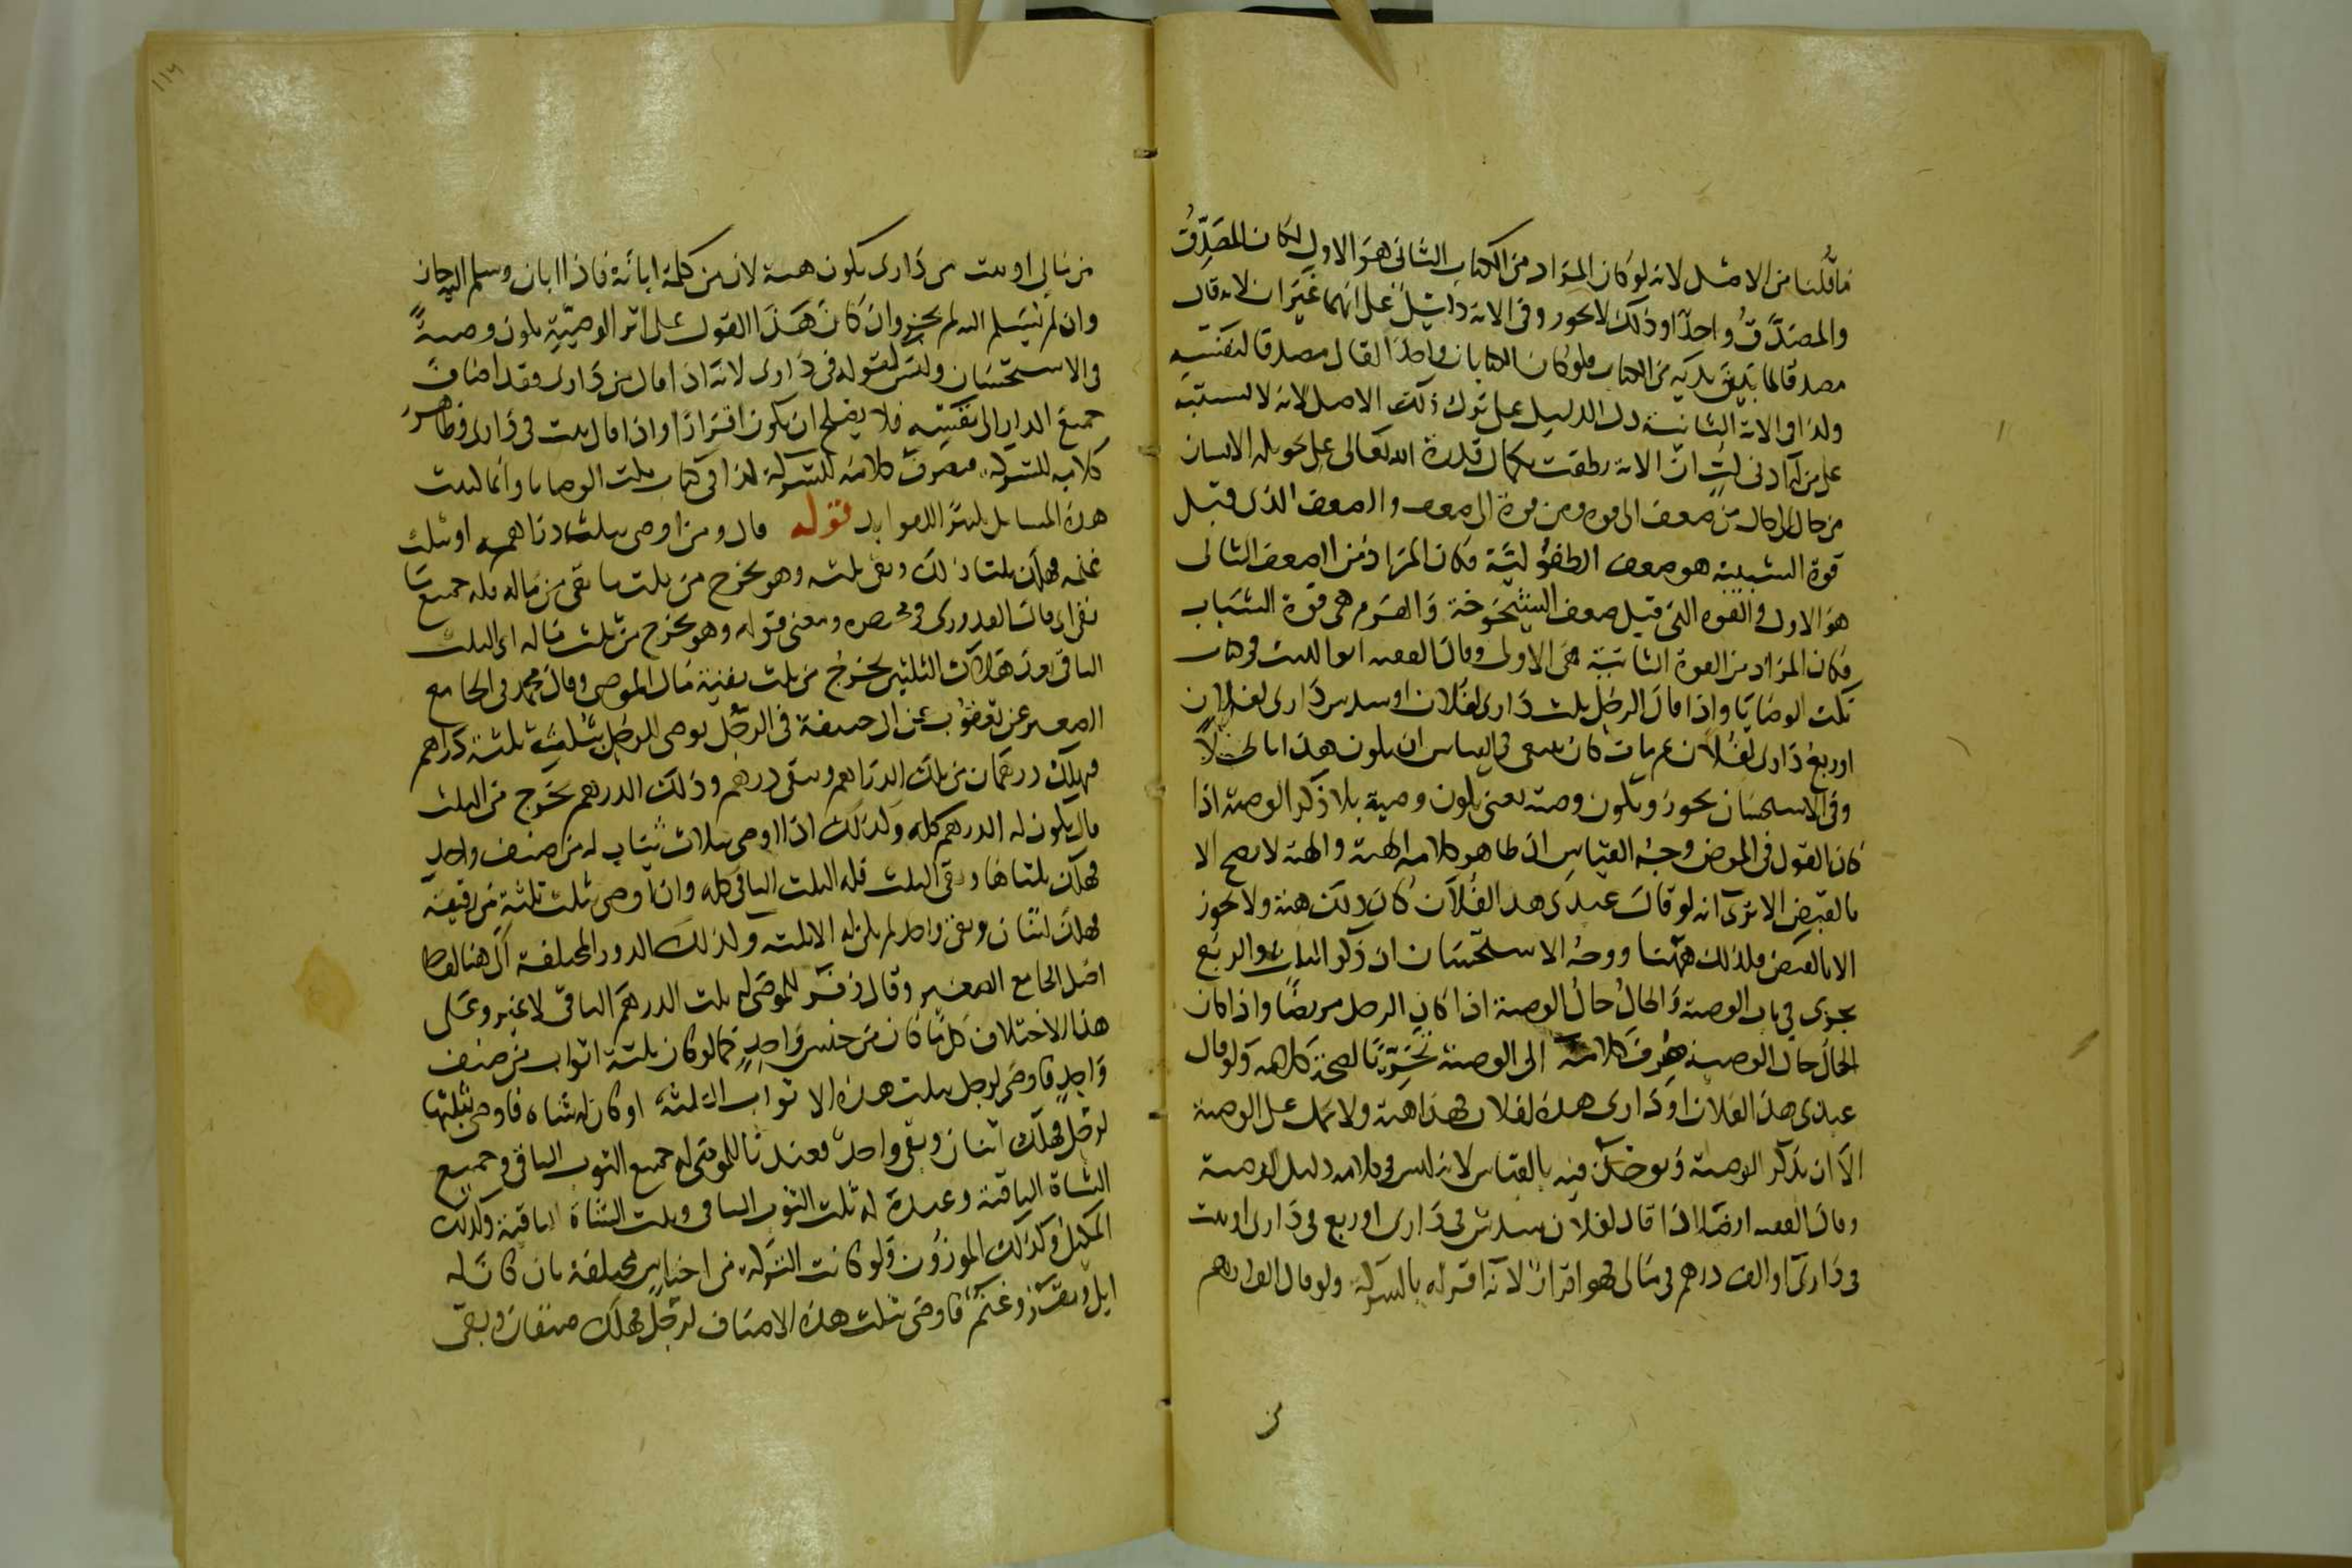 ما قلنا من الاصل لانه لو كان المراد من الكتاب الثاني هو الاول لكان المصدِّقُ
والمصدَّقُ واحدًا وذلك لا يجوز وفي الاية دليل على انهما غيران لانه قال
مصدقا لما بين يديه من الكتاب ولو كان الكتابان واحدا لقال مصدقا لنفسه
ولذا في الاية الثانية دل الدليل على ترك ذلك الاصل لانه لا يشتبه
على من له ادنى لب ان الاية نطقت بكمال قدرة الله تعالى على تحويله الانسان
من حال الى حال من ضعف الى قوة ومن قوة الى ضعف والضعف الذي قبل
قوة الشبيبة هو ضعف الطفولية فكان المراد من الضعف الثاني
هو الاول والقوة التي قبل ضعف الشيخوخة والهرم هي قوة الشباب
فكان المراد من القوة الثانية هي الاولى وقال الفقيه ابو الليث في كتاب
نكت الوصايا واذا قال الرجل ثلث داري لفلان او سدس داري لفلان
او ربع داري لفلان ثم مات كان ينبغي في القياس ان يكون هذا باطلا
وفي الاستحسان يجوز ويكون وصية يعني يكون وصية بلا ذكر الوصية اذا
كان القول في المرض وجه القياس ان ظاهر كلامه الهبة والهبة لا يصح الا
بالقبض الا ترى انه لو قال عبدي هذا لفلان كان ذلك هبة ولا يجوز
الا بالقبض فلذلك ههنا ووجه الاستحسان ان ذكر الثلث والربع
يجري في باب الوصية والحال حال الوصية اذا كان الرجل مريضا واذا كان
الحال حال الوصية صرف كلامه الى الوصية تحريا لصحة كلامه ولو قال
عبدي هذا لفلان او داري هذه لفلان فهذا هبة ولا يحمل على الوصية
الا ان يذكر الوصية ويوخذ فيه بالقياس لانه ليس في كلامه دليل الوصية
وقال الفقيه ايضا اذا قال لفلان سدس في داري او ربع في داري او بيت
في داري او الف درهم في مالي فهو اقرار لانه اقر له بالشركة ولو قال الف درهم
من
من مالي او بيت من داري يكون هبة لان من كلمة ابانة فاذا ابان وسلم اليه جاز
وان لم يسلم اليه لم يجز وان كان هذا القول على اثر الوصية يكون وصيةً
في الاستحسان وليس لقوله في داري لانه اذا قال من داري فقد اضاف
جميع الدار الى نفسه فلا يصلح ان يكون اقرارا واذا قال بيت في داري فظاهر
كلامه للشركة فيصرف كلامه للشركة لذا في كتاب نكت الوصايا وانما ليت
هذه المسائل والله الصواب قوله قال ومن اوصى بثلث دراهمه او ثلث
غنمه فهلك ثلثا ذلك وبقى ثلثه وهو يخرج من ثلث ما بقي من ماله فله جميع ما
بقي اي قال القدوري في مختصره ومعنى قوله وهو يخرج من ثلث ماله اي الثلث
الباقي بعد هلاك الثلثين يخرج من ثلث بقية مال الموصي وقال محمد في الجامع
الصغير عن يعقوب عن ابي حنيفة في الرجل يوصي للرجل بثلث ثلثة دراهم
فهلك درهمان من تلك الدراهم وبقي درهم وذلك الدرهم يخرج من الثلث
قال يكون له الدرهم كله وكذلك اذا اوصى بثلاث ثياب له من صنف واحد
فهلك ثلثاها وبقي الثلث فله الثلث الباقي كله وان اوصى بثلث ثلثة من رقيقه
فهلك اثنان وبقي واحد لم يكن له الا ثلثه وكذلك الدور المختلفة الى هنا لفظ
اصل الجامع الصغير وقال زفر للموصى له ثلث الدرهم الباقي لا غير وعلى
هذا الاختلاف كل ما كان من جنس واحد كما لو كان ثلثة اثواب من صنف
واحد فاوصى لرجل بثلث هذه الاثواب الثلثة او كان له شاه فاوصى بثلثها
لرجل فهلك اثنان وبقي واحد فعندنا للموصى له جميع الثوب الباقي وجميع
الشاة الباقية وعنده له ثلث الثوب الباقي وثلث الشاة الباقية وكذلك
المكيل وكذلك الموزون ولو كانت التركة من اجناس مختلفة بان كان له
ابل وبقر وغنم فاوصى بثلث هذه الاصناف لرجل فهلك صنفان وبقي